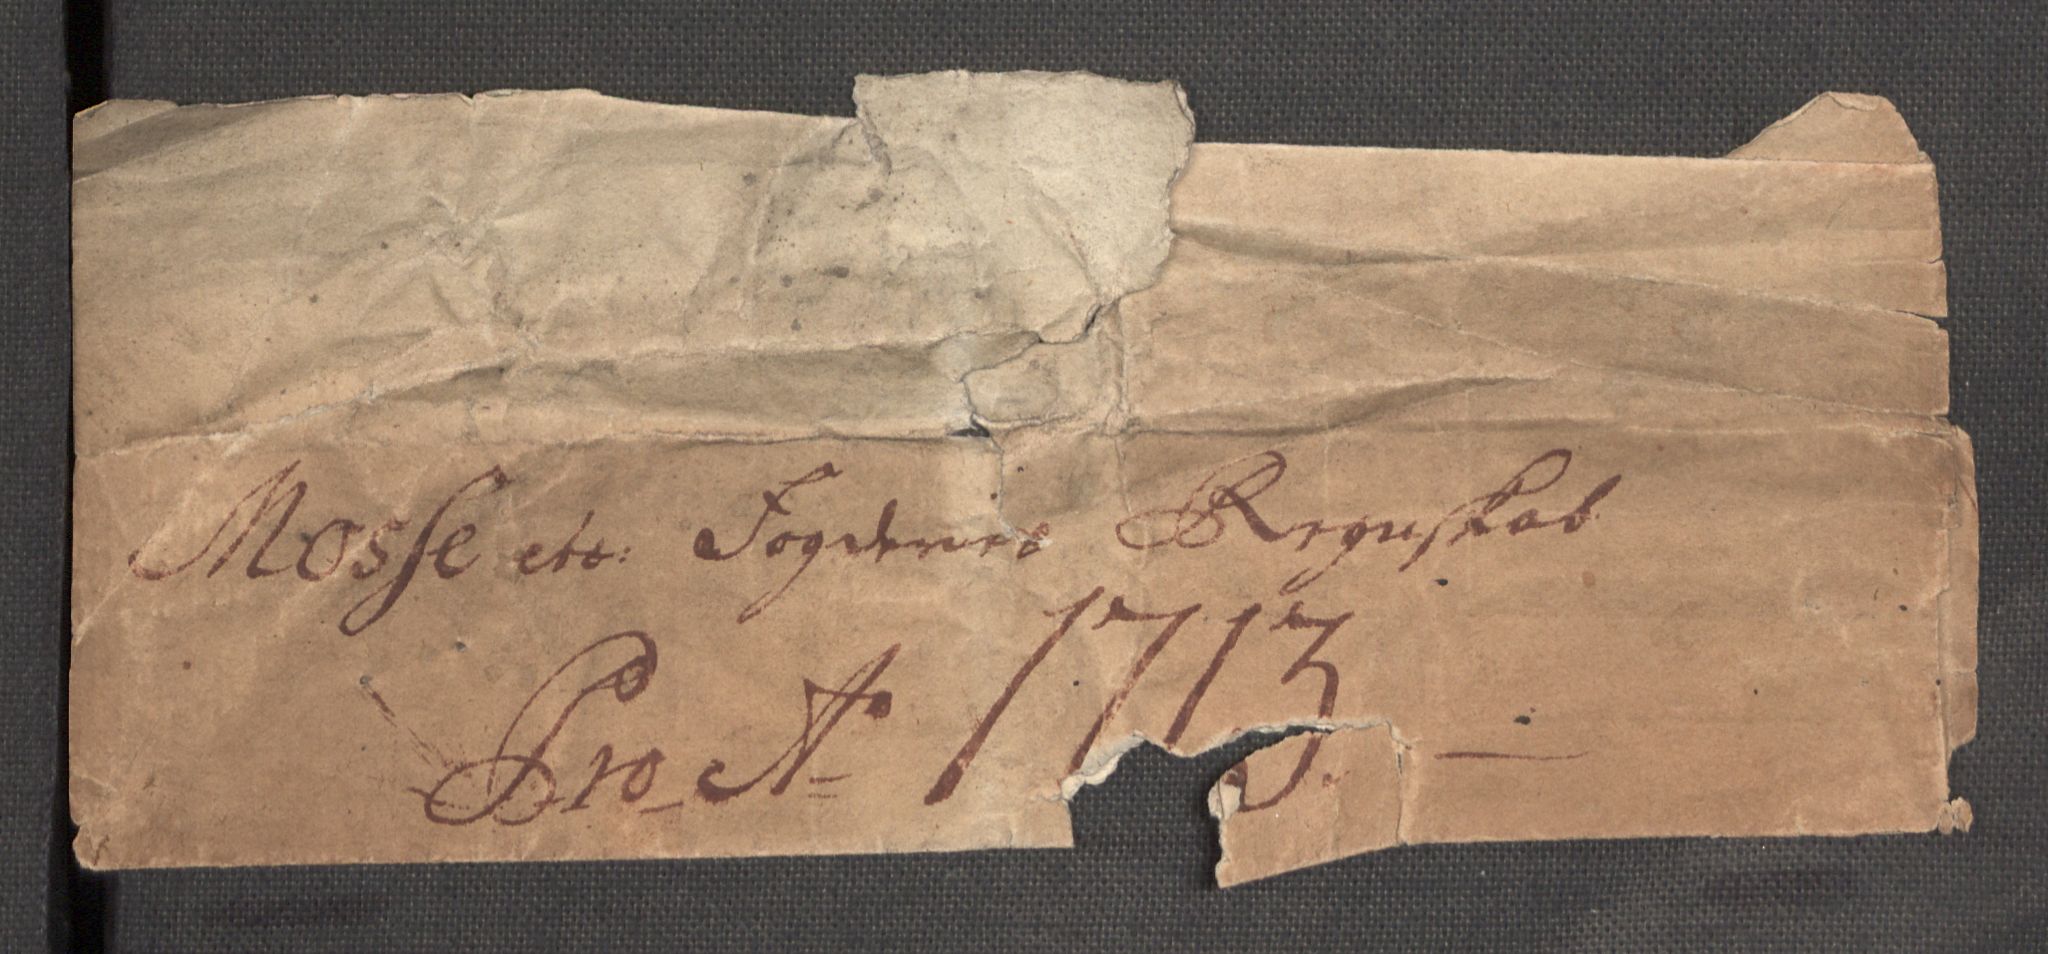 Mosse etc: Fogderies Regnskab
Pro Ao 1713